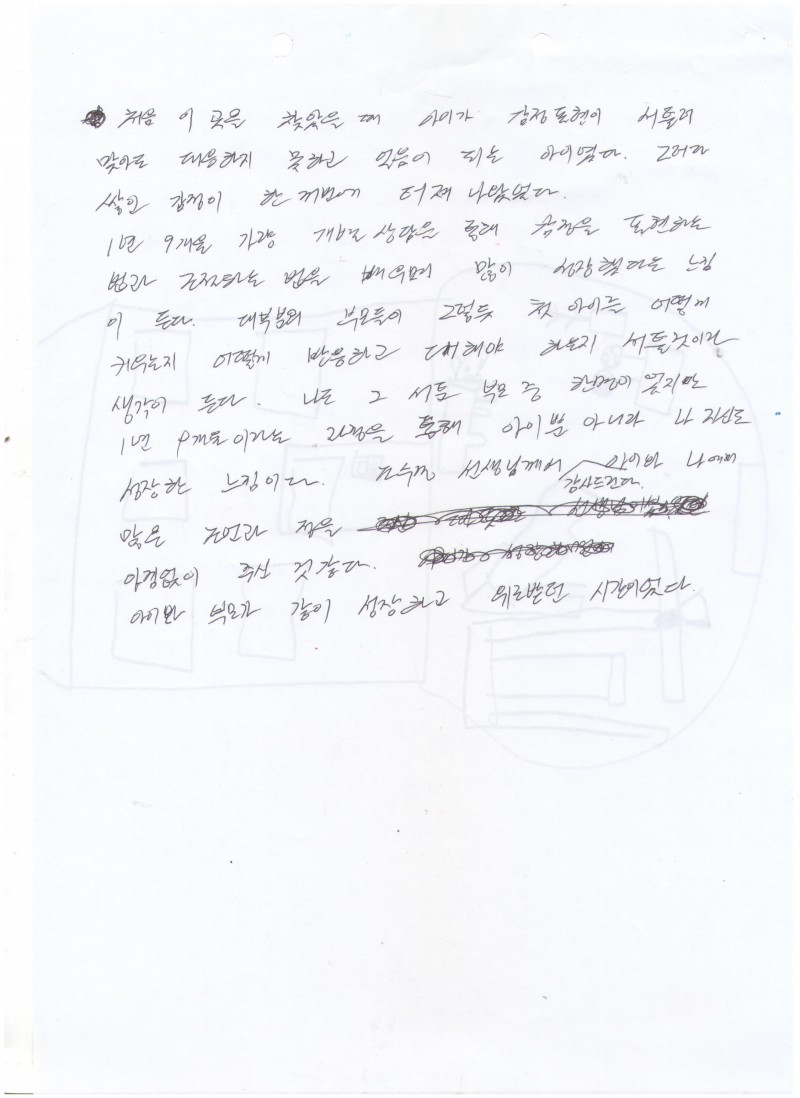 처음 이 곳을 찾았을 때 아이가 감정표현이 서툴러
맞아도 대응하지 못하고 얼음이 되는 아이였다. 그러다
쌓인 감정이 한꺼번에 터져 나왔었다.
1년 9개월 가량 개별 상담을 통해 감정을 표현하는
법과 조절하는 법을 배우며 많이 성장했다는 느낌
이 든다. 대부분의 부모들이 그렇듯 첫 아이를 어떻게
키우는지 어떻게 반응하고 대해야 하는지 서툴것이라
생각이 든다. 나도 그 서툰 부모 중 한명이었지만
1년 9개월이라는 과정을 통해 아이뿐 아니라 나 자신도
성장한 느낌이다. 선생님께서 아이와 나에게
감사드린다.
많은 조언과 정을
아낌없이 주신 것 같다.
아이와 부모가 같이 성장하고 위로받던 시간이었다.